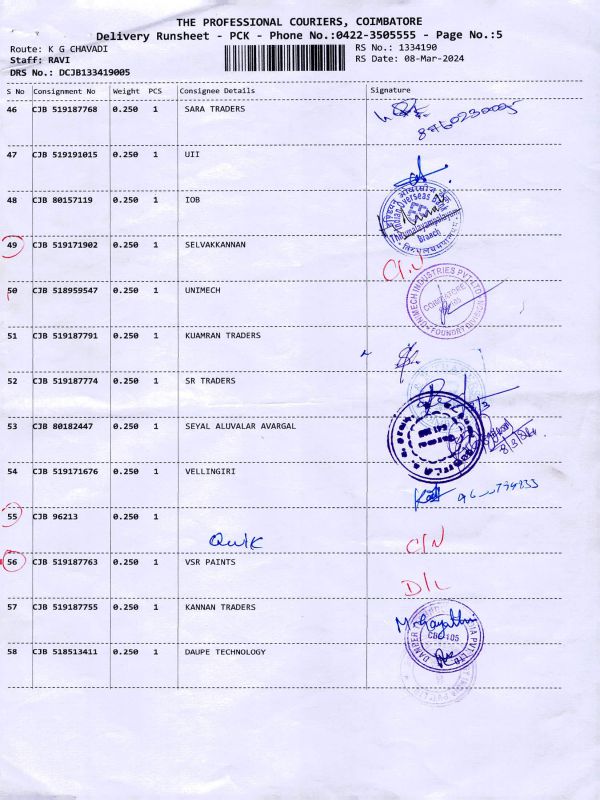 THE PROFESSIONAL COURIERS, COIMBATORE
Delivery Runsheet - PCK - Phone No.:0422-3505555 - Page No.:5
Route: K G CHAVADI RS No.: 1334190
Staff: RAVI RS Date: 08-Mar-2024
DRS No.: DCJB133419005
S No Consignment No Weight PCS Consignee Details Signature
46 CJB 519187768 0.250 1 SARA TRADERS
47 CJB 519191015 0.250 1 UII
48 CJB 80157119 0.250 1 IOB
Indian Overseas Bank
Thirumalayampalayam
Branch
49 CJB 519171902 0.250 1 SELVAKKANNAN
C/N
50 CJB 518959547 0.250 1 UNIMECH
UNIMECH INDUSTRIES PVT.LTD
COIMBATORE
FOUNDRY DIVISION
51 CJB 519187791 0.250 1 KUAMRAN TRADERS
52 CJB 519187774 0.250 1 SR TRADERS
53 CJB 80182447 0.250 1 SEYAL ALUVALAR AVARGAL
8/3/24
54 CJB 519171676 0.250 1 VELLINGIRI
55 CJB 96213 0.250 1
Quik C/N
56 CJB 519187763 0.250 1 VSR PAINTS
D/L
57 CJB 519187755 0.250 1 KANNAN TRADERS
M. Gayathri
58 CJB 518513411 0.250 1 DAUPE TECHNOLOGY